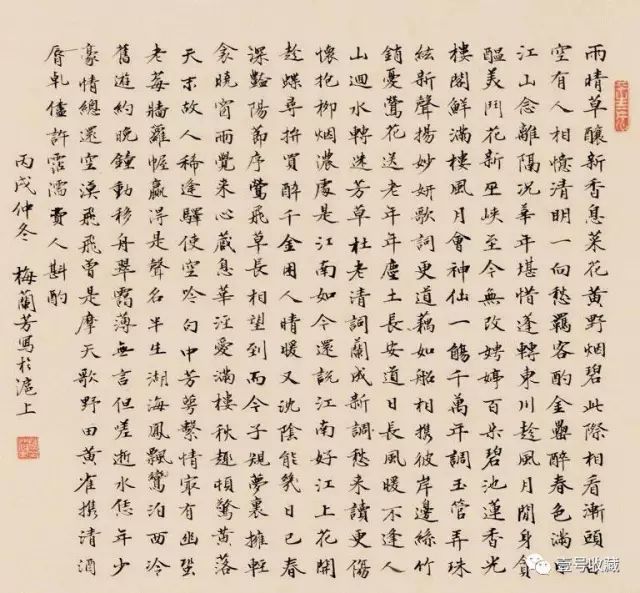 雨晴草釀新香息菜花黃野烟碧此際相看漸頭白
空有人相憶清明一向愁羈客酌金罍醉春色滿
江山念離隔況華年堪惜蓬轉東川趁風月閒身貪
醞美鬥花新巫峽至今無改娉婷百朵碧池蓮香光
樓閣鮮滿樓風月會神仙一觴千萬年調玉管弄珠
絃新聲揚妙妍歌詞更道藕如船相攜彼岸邊絲竹
銷憂鶯花送老年年塵土長安道日長風暖不逢人
山迴水轉迷芳草杜老清詞蘭成新調愁來讀更傷
懷抱柳烟濃處是江南如今還說江南好江上花開
趁蝶尋拚買醉千金困人晴暖又沈陰能幾日已春
深豔陽節序鶯飛草長相望到而今子規夢裏擁輕
衾曉窗雨覺來心藏息華淫愛滿樓秋趣頓驚黃落
天末故人稀逢驛使空吟句中芳萼繫情最有幽蛩
老莓牆籬幄贏得是聲名半生湖海鳳飄鸞泊西泠
舊遊約晚鐘動移舟翠靄薄無言但嗟逝水恁年少
豪情總還空漠飛飛曾是摩天歌野田黃雀攜清酒
脣乹儘許霑濡費人斟酌
丙戌仲冬 梅蘭芳寫於滬上
壹号收藏